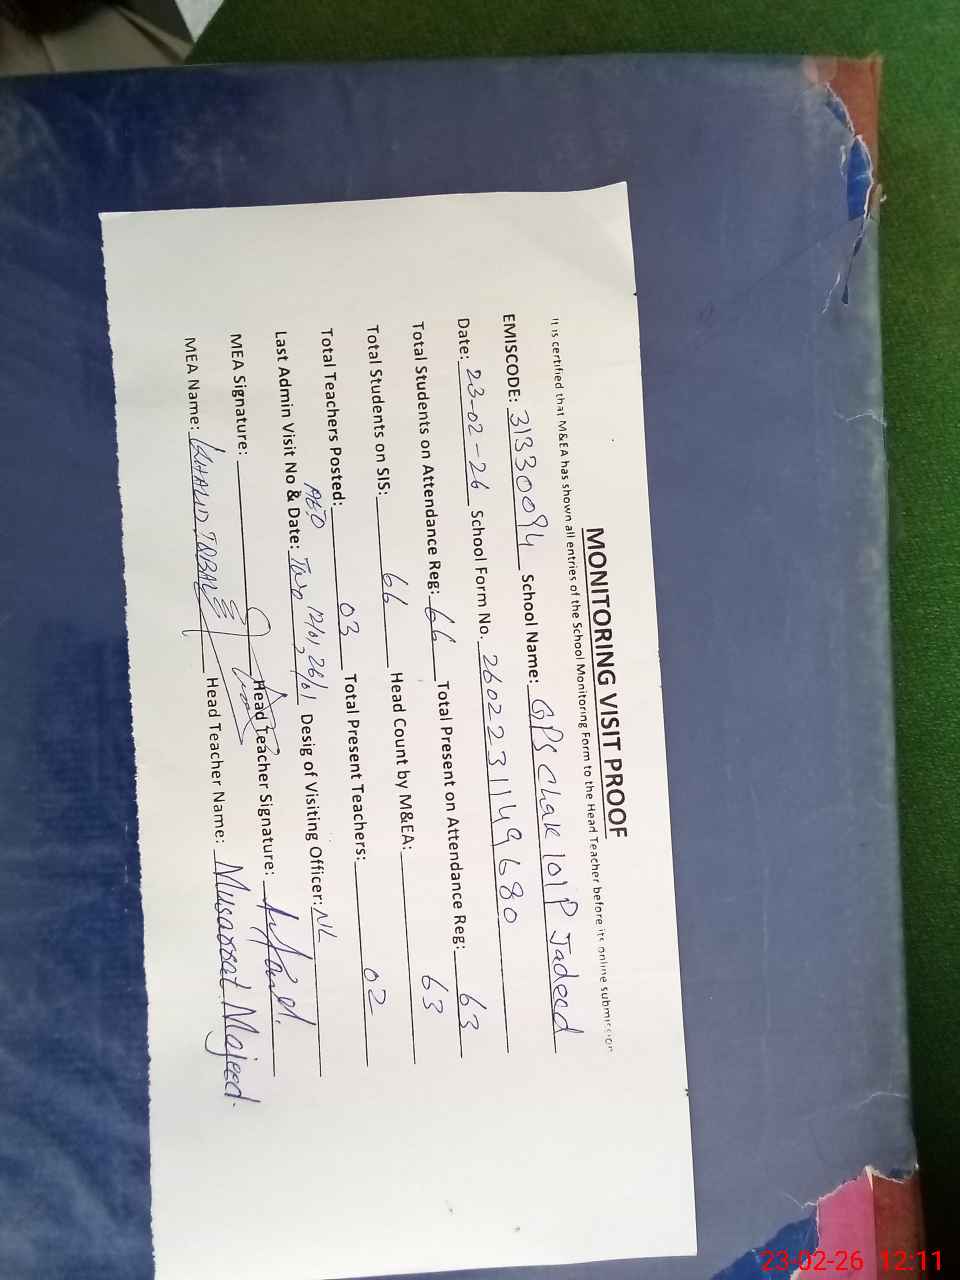 MONITORING VISIT PROOF
It is certified that M&EA has shown all entries of the School Monitoring Form to the Head Teacher before its online submission
EMISCODE: 31330094 School Name: GPS Chak 101P Jadeed
Date: 23-02-26 School Form No. 2602231149680
Total Students on Attendance Reg: 66 Total Present on Attendance Reg: 63
Total Students on SIS: 66 Head Count by M&EA: 63
Total Teachers Posted: 03 Total Present Teachers: 02
AEO
Last Admin Visit No & Date: Two 12/01, 26/01 Desig of Visiting Officer: NIL
MEA Signature: Head Teacher Signature:
MEA Name: KHALID IQBAL Head Teacher Name: Musarrat Majeed.
23-02-26 12:11